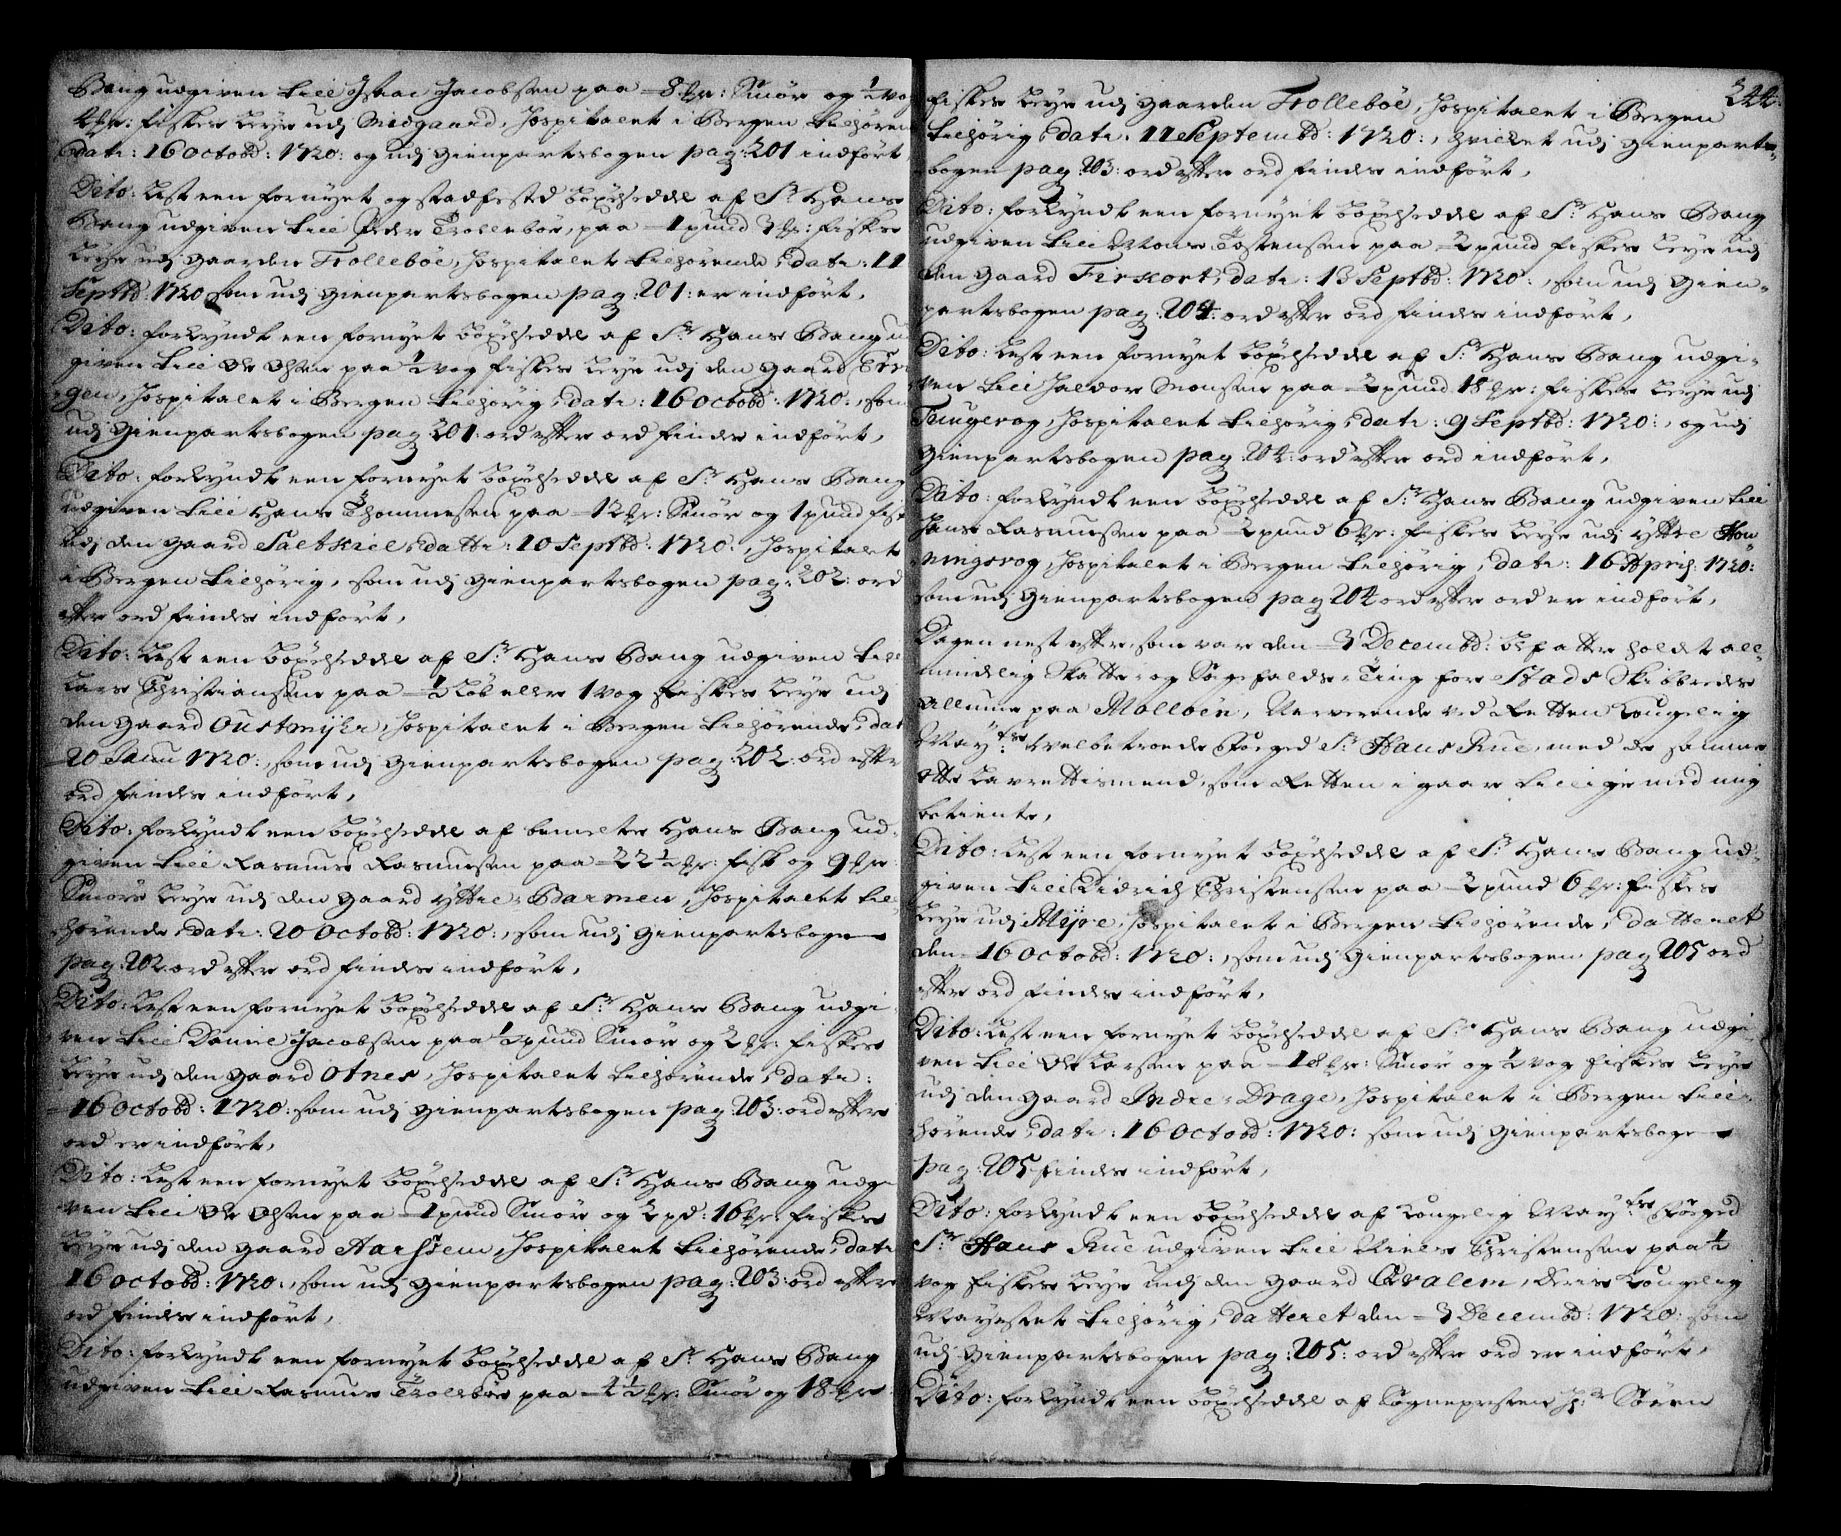 Bang udgiven till Isaac Jacobsen paa 8 [mk]: Smør og ½ vog
4 [mk]: fiskes leye udj Midgaard, Hospitalet i Bergen tilhørend
dat: 16 Octobd: 1720: og udj gienpartsbogen pag: 201 indført,
Dito: lest een fornyet og stadfested böxelseddel af Sr Hans
Bang udgiven till Peder Trollebøe, paa 1 pund 3 [mk]: fiskes
leye udj gaarden Trolleböe, Hospitalet tilhørende, dat: 11
Septbd: 1720 som udj gienpartsbogen pag: 201: er indført,
Dito: forkyndt een fornyet böxelseddel af Sr Hans Bang u
given till Ole Olsen paa ½ vog fiskes leye udj den gaard
gen, Hospitalet i Bergen tilhørig, dat: 16 Octobd: 1720:, som
udj gienpartsbogen pag 201: ord efter ord findes indført,
Dito: forkyndt een fornyet böxelseddel af Sr Hans Bang
udgiven till Hans Thommesen paa 12 [mk]: Smør og 1 pund fisk
udj den gaard Saltkiel, datt: 10 Septbd: 1720:, Hospitalet
i Bergen tilhørig, som udj gienpartsbogen pag: 202: ord
efter ord findes indført,
Dito: lest een böxelseddel af Sr Hans Bang udgiven till
Lars Christiansen paa ½ løb eller 1 vog fiskes leye udj
den gaard Oustmyhr, Hospitalet i Bergen tilhørende, dat
20 Janu 1720:, som udj gienpartsbogen pag: 202: ord efter
ord findes indført,
Dito: forkyndt een böxelseddel af bemelte Hans Bang ud-
given till Rasmus Rasmussen paa 22½ [mk]: fisk og 9 [mk]:
Smørs leye udj den gaard yttre Barmen, Hospitalet til-
hørende, dat: 20 Octobd: 1720:, som udj gienpartsbogen
pag: 202 ord efter ord findes indført,
Dito: lest een fornyet böxelseddel af Sr Hans Bang udgi
ven till Daniel Jacobsen paa ½ pund Smør og 2 [mk]: fiskes
leye udj den gaard Otnes, Hospitalet tilhørende, dat:
16 Octobd: 1720: som udj gienpartsbogen pag: 203: ord efter
ord er indført,
Dito: lest een fornyet böxelseddel af Sr Hans Bang udgi
ven till Ole Olsen paa 1 pund Smør og 2 pd: 16 [mk]: fiskes
leye udj den gaard Aarsteim, Hospitalet tilhørende, dat
16 Octobd: 1720:, som udj gienpartsbogen pag: 203: ord efter
ord findes indført,
Dito: forkyndt een fornyet böxelseddel af Sr Hans Bang
udgiven till Rasmus Trollebøe paa 4½ [mk]: Smør og 18 [mk]:
244.
fiskes leye udj gaarden Trolleböe, Hospitalet i Bergen
tilhørig, dat: 11 Septembd: 1720:, hvilket udj gienparts-
bogen pag: 203: ord efter ord findes indført,
Dito: forkyndt een fornyet böxelseddel af Sr Hans Bang
udgiven till Mons Tostensen paa 2 pund fiskes leye udj
den gaard Tirkort, dat: 13 Septbd: 1720:, som udj gien-
partsbogen pag: 204: ord efter ord findes indført,
Dito: lest een fornyet böxelseddel af Sr Hans Bang udgi-
ven till Haldor Monsen paa 2 pund 18 [mk]: fiskes leye udj
Teugevog, Hospitalet tilhørig, dat: 9 Septbd: 1720:, og udj
gienpartsbogen pag: 204: ord efter ord indført,
Dito: forkyndt een böxelseddel af Sr Hans Bang udgiven till
Hans Rasmussen paa 2 pund 6 [mk]: fiskes leye udj yttre Hon-
ningsvog, Hospitalet i Bergen tilhørig, dat: 16 April: 1720:
som udj gienpartsbogen pag 204 ord efter ord er indført,
Dagen nest efter, som var den 3 Decembd: blef atter holdt all-
mindelig Skatte- og Sagefalds Ting for Stads Skibbredes
Allmue paa Molloën, Nerverende ved Retten Kongelig
Mayts. Welbetroede Foeged Sr Hans Rue, med de samme
otte Lavrettismend, som Retten i gaar tillige med mig
betiente,
Dito: lest een fornyet böxelseddel af Sr Hans Bang ud-
given till Didrich Christensen paa 2 pund 6 [mk]: fiskes
leye udj Mijre, Hospitalet i Bergen tilhørende, datteret
den 16 Octobd: 1720:, som udj gienpartsbogen pag 205 ord
efter ord findes indført,
Dito: lest een fornyet böxelseddel af Sr Hans Bang udgi-
ven till Ole Larsen paa 18 [mk]: Smør og ½ vog fiskes leye
udj den gaard Indre Drage, Hospitalet i Bergen till-
hørende, dat: 16 Octobd: 1720: som udj gienpartsbogen
pag: 205 findes indført,
Dito: forkyndt een böxelseddel af Kongelig Mayts. Foeged
Sr Hans Rue udgiven till Niels Christensen paa ½
vog fiskes leye udj den gaard Qvalem, deris Kongelig
Mayestet tilhørig, datteret den 3 Decembd: 1720: som
udj gienpartsbogen pag: 205: ord efter ord er indført,
Dito: forkyndt een böxelseddel af Sognepresten Hr Søren